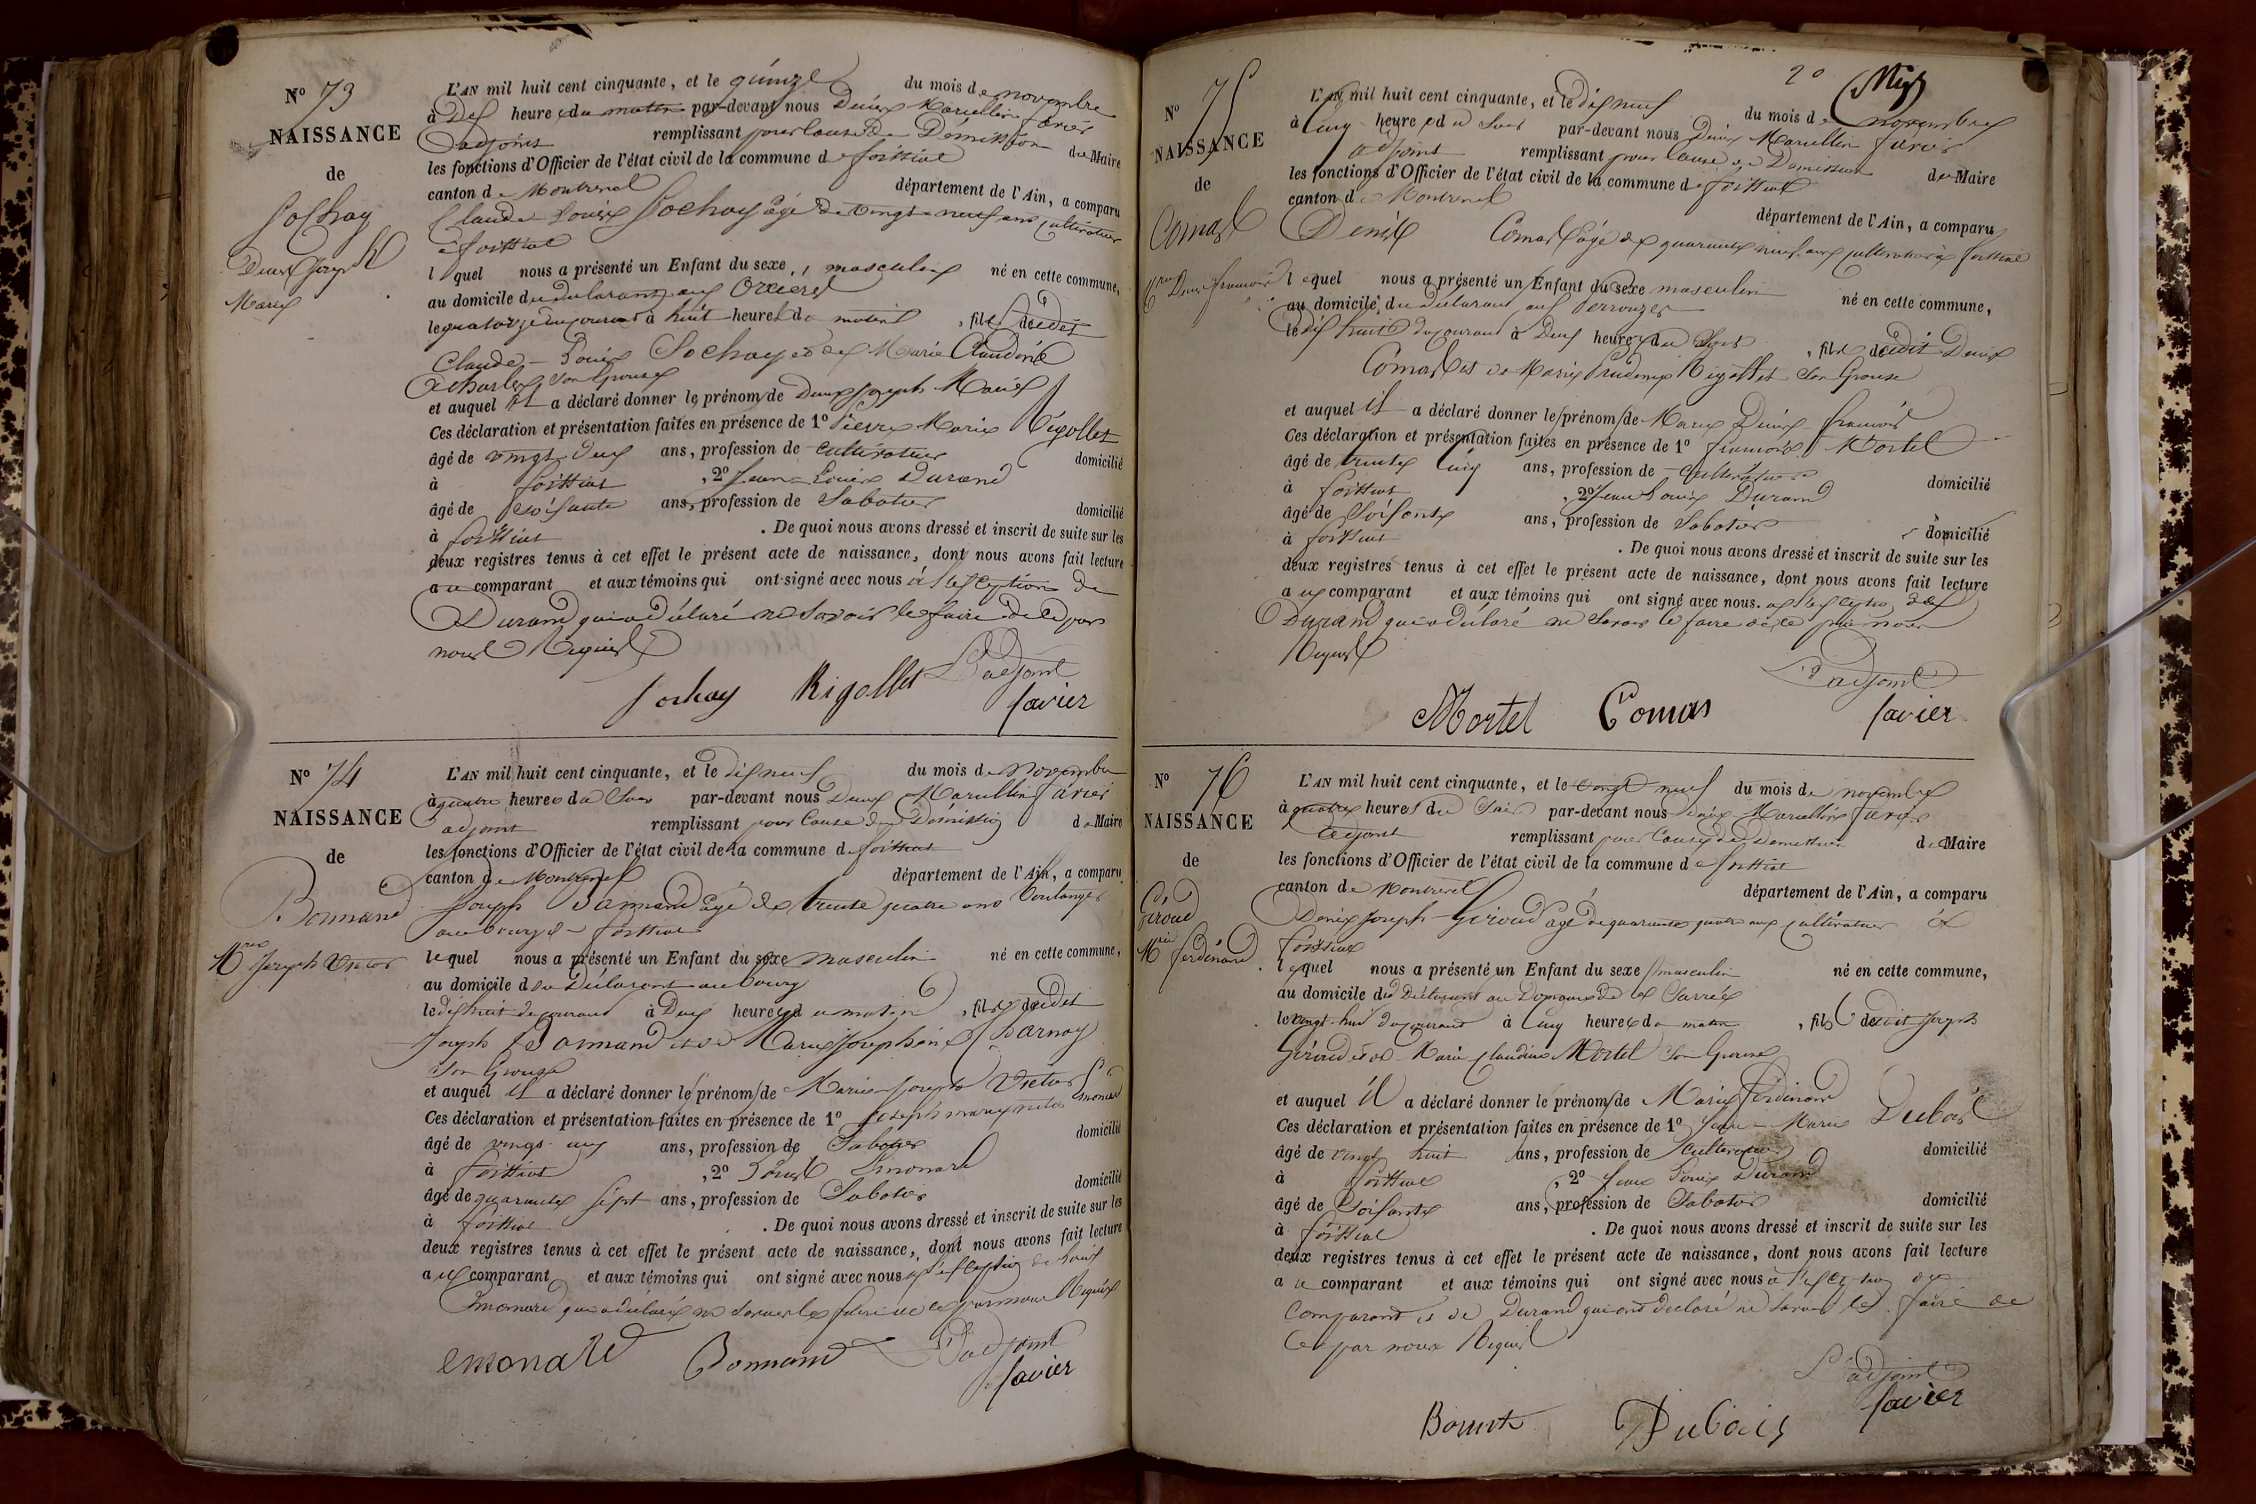 N° 73
NAISSANCE
de
Sochay
Denis Joseph
Marie
L'AN mil huit cent cinquante, et le quinze du mois de novembre
à Dix heures du matin par-devant nous Denis Marcellin favier
adjoint remplissant pour cause de Demission du Maire
les fonctions d'Officier de l'état civil de la commune de foissiat
canton de Montrevel département de l'Ain, a comparu
Claude Louis Sochay âgé de vingt neuf ans cultivateur
à foissiat
lequel nous a présenté un Enfant du sexe masculin né en cette commune,
au domicile du declarant aux
le quatorze du courant à huit heures du matin, fils dudit
Claude Louis Sochay et de Marie Claudine
son Epouse
et auquel il a déclaré donner le prénom de Denis Joseph Marie
Ces déclaration et présentation faites en présence de 1° Pierre Marie Rigollet
âgé de vingt Deux ans, profession de cultivateur domicilié
à foissiat, 2° Jean Louis Durand
âgé de soisante ans, profession de Sabotier domicilié
à foissiat. De quoi nous avons dressé et inscrit de suite sur les
deux registres tenus à cet effet le présent acte de naissance, dont nous avons fait lecture
au comparant et aux témoins qui ont signé avec nous à l'exception de
Durand qui a déclaré ne savoir le faire de ce par
nous Requis
Sochay Rigollet L'adjoint
favier
N° 74
NAISSANCE
de
Bonnand
Mrie Joseph Victor
L'AN mil huit cent cinquante, et le dix neuf du mois de Novembre
à quatre heures du Soir par-devant nous Denis Marcellin favier
adjoint remplissant pour Cause de Démission du Maire
les fonctions d'Officier de l'état civil de la commune de foissiat
canton de Montrevel département de l'Ain, a comparu
Joseph Bonnand âgé de trente quatre ans boulanger
au bourg de foissiat
lequel nous a présenté un Enfant du sexe masculin né en cette commune,
au domicile du Déclarant au bourg
le dix huit du courant à Deux heures du matin, fils dudit
Joseph Bonnand et de Marie Josephine Charnay
son Epouse
et auquel il a déclaré donner le prénom de Marie Joseph Victor
Ces déclaration et présentation faites en présence de 1° Joseph marie Emonard
âgé de vingt ans, profession de Sabotier domicilié
à foissiat, 2° Louis Emonard
âgé de quarante sept ans, profession de Sabotier domicilié
à foissiat. De quoi nous avons dressé et inscrit de suite sur les
deux registres tenus à cet effet le présent acte de naissance, dont nous avons fait lecture
aux comparant et aux témoins qui ont signé avec nous à l'exception de Louis
Emonard qui a déclaré ne savoir le faire de ce par nous Requis
emonard Bonnand L'adjoint
favier
2°
N° 75
NAISSANCE
de
Comas
Mrie Denis francois
L'AN mil huit cent cinquante, et le dix neuf du mois de novembre
à Cinq heures du Soir par-devant nous Denis Marcellin favier
adjoint remplissant pour cause de Demission du Maire
les fonctions d'Officier de l'état civil de la commune de foissiat
canton de Montrevel département de l'Ain, a comparu
Denis Comas âgé de quarante neuf ans cultivateur à foissiat
lequel nous a présenté un Enfant du sexe masculin né en cette commune,
au domicile du declarant aux
le dix huit du courant à Deux heures du Soir, fils dudit Denis
Comas et de Marie Rigollet son Epouse
et auquel il a déclaré donner le prénom de Marie Denis francois
Ces déclaration et présentation faites en présence de 1° francois Mortel
âgé de trente Cinq ans, profession de cultivateur domicilié
à foissiat, 2° Jean Louis Durand
âgé de Soisante ans, profession de Sabotier domicilié
à foissiat. De quoi nous avons dressé et inscrit de suite sur les
deux registres tenus à cet effet le présent acte de naissance, dont nous avons fait lecture
aux comparant et aux témoins qui ont signé avec nous à l'exception de
Durand qui a déclaré ne savoir le faire de ce par nous
Requis
Mortel Comas L'adjoint
favier
N° 76
NAISSANCE
de
Giroud
Mrie ferdinand
L'AN mil huit cent cinquante, et le vingt neuf du mois de novembre
à quatre heures du Soir par-devant nous Denis Marcellin favier
adjoint remplissant pour Cause de Demission du Maire
les fonctions d'Officier de l'état civil de la commune de foissiat
canton de Montrevel département de l'Ain, a comparu
Denis Joseph Giroud âgé de quarante quatre ans cultivateur à
foissiat
lequel nous a présenté un Enfant du sexe masculin né en cette commune,
au domicile du Déclarant au Domaine de
le vingt huit du courant à Cinq heures du matin, fils dudit Joseph
Giroud et de Marie Claudine Mortel son Epouse
et auquel il a déclaré donner le prénom de Marie ferdinand
Ces déclaration et présentation faites en présence de 1° Jean Marie Dubois
âgé de vingt huit ans, profession de Cultivateur domicilié
à foissiat, 2° Jean Louis Durand
âgé de Soisante ans, profession de Sabotier domicilié
à foissiat. De quoi nous avons dressé et inscrit de suite sur les
deux registres tenus à cet effet le présent acte de naissance, dont nous avons fait lecture
au comparant et aux témoins qui ont signé avec nous à l'exception du
Comparant et de Durand qui ont declaré ne savoir le faire de
Ce par nous Requis
L'adjoint
Dubois favier